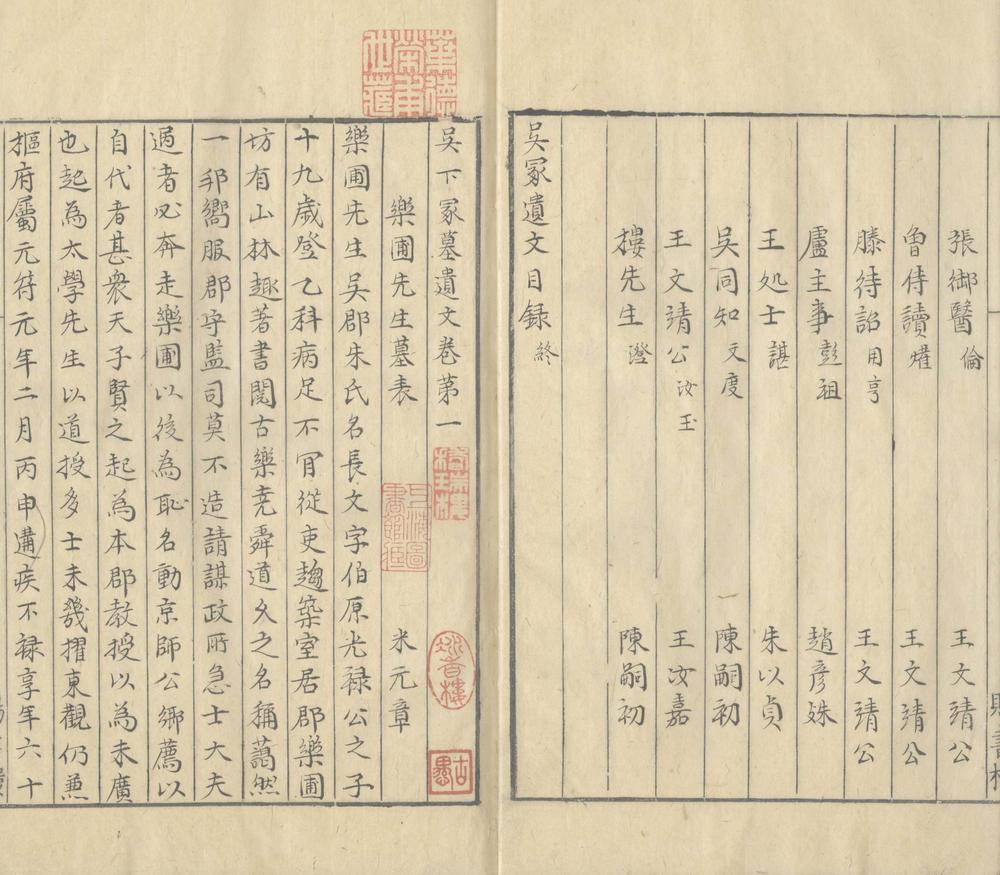 張御醫 倫 王文靖公
魯侍讀 㸌 王文靖公
滕待詔 用亨 王文靖公
盧主事 彭祖 趙彥姝
王処士 諶 朱以貞
吳同知 文度 陳嗣初
王文靖公 汝玉 王汝嘉
樓先生 澄 陳嗣初
吳冢遺文目録 終
吳下冢墓遺文卷苐一
樂圃先生墓表 米元章
樂圃先生吳郡朱氏名長文字伯原光禄公之子
十九歳登乙科病足不肎從吏趨築室居郡樂圃
坊有山林趣著書閱古樂尭舜道久之名稱藹然
一邦嚮服郡守監司莫不造請謀政所急士大夫
過者必奔走樂圃以後為恥名動京師公卿薦以
自代者甚衆天子賢之起為本郡教授以為未廣
也起為太學先生以道授多士未幾擢東觀仍兼
樞府屬元符元年二月丙申遘疾不禄享年六十